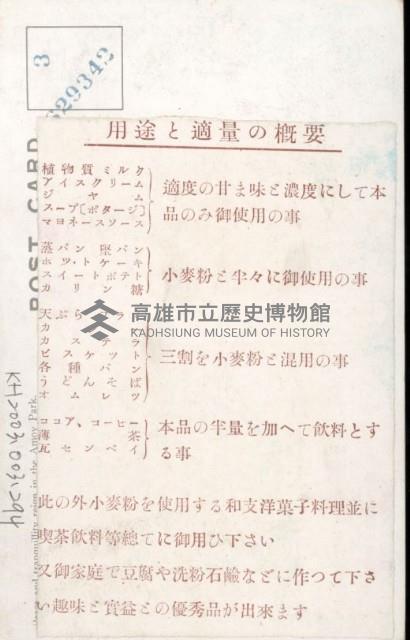 3
629342
POST CARD
用途と適量の概要
植物質ミルク
アイスクリーム
ジヤム
スープ〔ポタージ〕
マヨネースソース
適度の甘ま味と濃度にして本
品のみ御使用の事
蒸パン 堅パン
ホツ・トケーキ
スイートポテト
カリン糖
小麥粉と半々に御使用の事
天ぷら
カステラ
ビスケツト
各種パン
うどんそば
オムレツ
三割を小麥粉と混用の事
ココア、コーヒー
薄茶
瓦センベイ
本品の半量を加へて飲料とす
る事
此の外小麥粉を使用する和支洋菓子料理並に
喫茶飲料等總てに御用ひ下さい
又御家庭で豆腐や洗粉石鹼などに作つて下さ
い趣味と實益との優秀品が出來ます
高雄市立歷史博物館
KAOHSIUNG MUSEUM OF HISTORY
KH2003.003.294
in the Amoy Park.